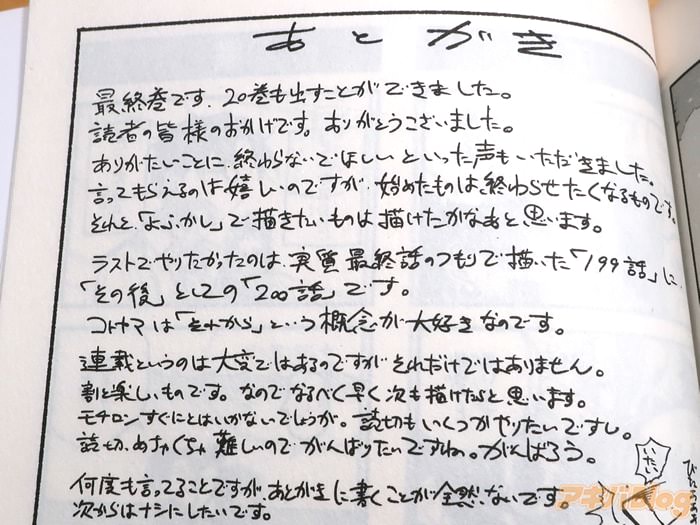 あとがき
最終巻です。20巻も出すことができました。
読者の皆様のおかげです。ありがとうございました。
ありがたいことに、終わらないでほしいといった声もいただきました。
言ってもらえるのは嬉しいのですが、始めたものは終わらせたくなるものです。
それと、「よふかし」で描きたいものは描けたかなあと思います。
ラストでやりたかったのは、実質最終話のつもりで描いた「199話」に
「その後」としての「200話」です。
コトヤマは「それから」という概念が大好きなのです。
連載というのは大変ではあるのですがそれだけではありません。
割と楽しいものです。なのでなるべく早く次も描けたらと思います。
モチロンすぐにとはいかないでしょうが。読切もいくつかやりたいですし。
読切、めちゃくちゃ難しいのでがんばりたいですね。がんばろう。
何度も言ってることですが、あとがきに書くことが全然ないです。
次からはナシにしたいです。
いたい
アキバBlog